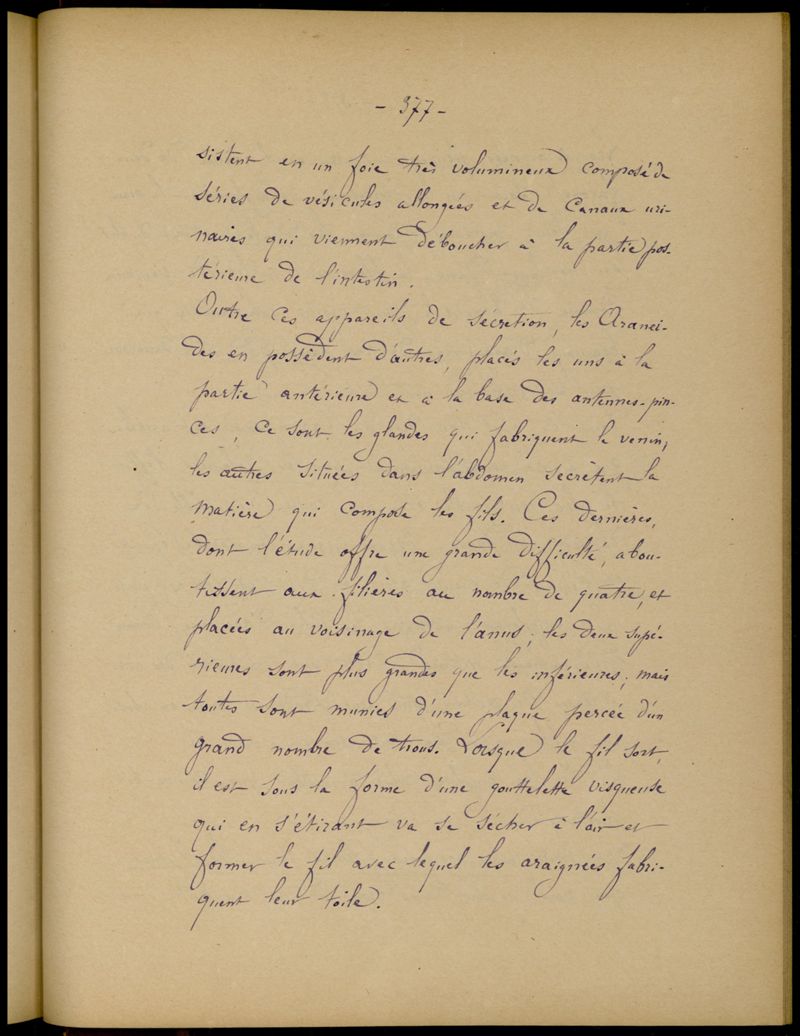 - 377 -
sistent en un foie très volumineux composé de
séries de vésicules allongées et de Canaux uri-
naires qui viennent déboucher à la partie pos-
térieure de l'intestin.
Outre ces appareils de sécretion, les Aranei-
des en possèdent d'autres, placés les uns à la
partie antérieure et à la base des antennes-pin-
ces, ce sont les glandes qui fabriquent le venin,
les autres situées dans l'abdomen secrètent la
matière qui compose les fils. Ces dernières,
dont l'étude offre une grande difficulté, abou-
tissent aux filières au nombre de quatre, et
placées au voisinage de l'anus; les deux supé-
rieures sont plus grandes que les inférieures; mais
toutes sont munies d'une plaque percée d'un
grand nombre de trous. Lorsque le fil sort,
il est sous la forme d'une gouttelette visqueuse
qui en s'étirant va se sécher à l'air et
former le fil avec lequel les araignées fabri-
quent leur toile.